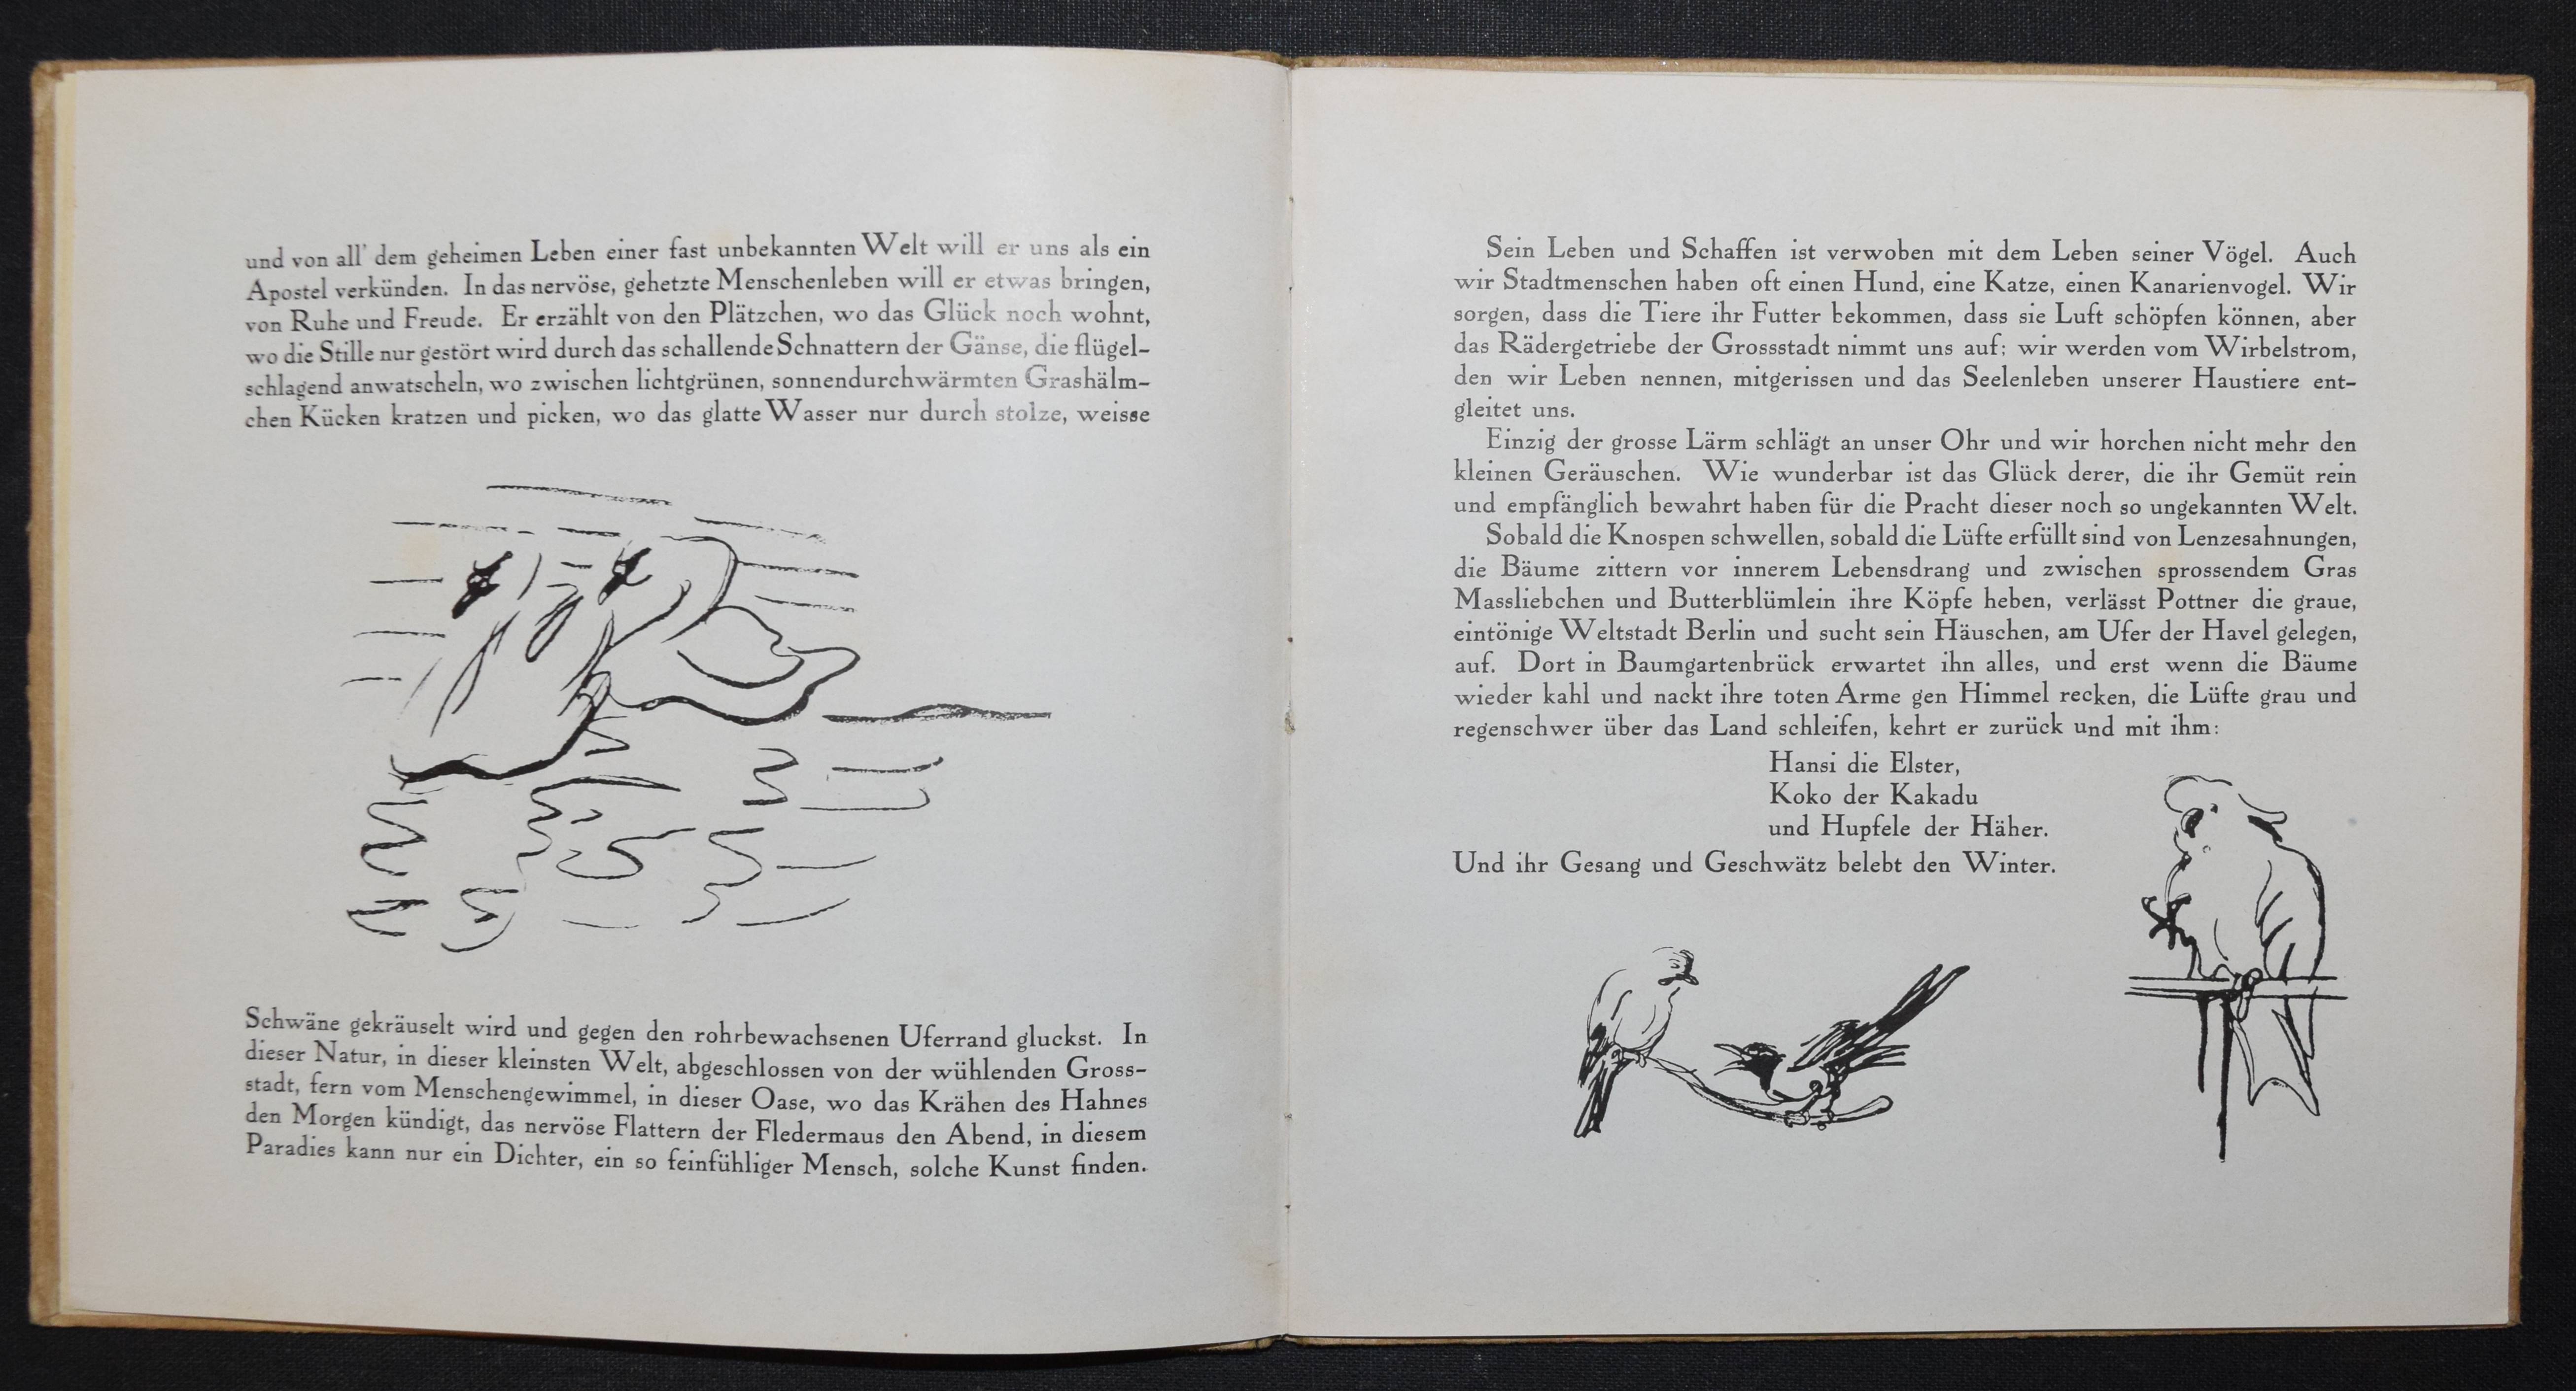 und von all' dem geheimen Leben einer fast unbekannten Welt will er uns als ein
Apostel verkünden. In das nervöse, gehetzte Menschenleben will er etwas bringen,
von Ruhe und Freude. Er erzählt von den Plätzchen, wo das Glück noch wohnt,
wo die Stille nur gestört wird durch das schallende Schnattern der Gänse, die flügel-
schlagend anwatscheln, wo zwischen lichtgrünen, sonnendurchwärmten Grashälm-
chen Kücken kratzen und picken, wo das glatte Wasser nur durch stolze, weisse
Schwäne gekräuselt wird und gegen den rohrbewachsenen Uferrand gluckst. In
dieser Natur, in dieser kleinsten Welt, abgeschlossen von der wühlenden Gross-
stadt, fern vom Menschengewimmel, in dieser Oase, wo das Krähen des Hahnes
den Morgen kündigt, das nervöse Flattern der Fledermaus den Abend, in diesem
Paradies kann nur ein Dichter, ein so feinfühliger Mensch, solche Kunst finden.
Sein Leben und Schaffen ist verwoben mit dem Leben seiner Vögel. Auch
wir Stadtmenschen haben oft einen Hund, eine Katze, einen Kanarienvogel. Wir
sorgen, dass die Tiere ihr Futter bekommen, dass sie Luft schöpfen können, aber
das Rädergetriebe der Grossstadt nimmt uns auf; wir werden vom Wirbelstrom,
den wir Leben nennen, mitgerissen und das Seelenleben unserer Haustiere ent-
gleitet uns.
Einzig der grosse Lärm schlägt an unser Ohr und wir horchen nicht mehr den
kleinen Geräuschen. Wie wunderbar ist das Glück derer, die ihr Gemüt rein
und empfänglich bewahrt haben für die Pracht dieser noch so ungekannten Welt.
Sobald die Knospen schwellen, sobald die Lüfte erfüllt sind von Lenzesahnungen,
die Bäume zittern vor innerem Lebensdrang und zwischen sprossendem Gras
Massliebchen und Butterblümlein ihre Köpfe heben, verlässt Pottner die graue,
eintönige Weltstadt Berlin und sucht sein Häuschen, am Ufer der Havel gelegen,
auf. Dort in Baumgartenbrück erwartet ihn alles, und erst wenn die Bäume
wieder kahl und nackt ihre toten Arme gen Himmel recken, die Lüfte grau und
regenschwer über das Land schleifen, kehrt er zurück und mit ihm:
Hansi die Elster,
Koko der Kakadu
und Hupfele der Häher.
Und ihr Gesang und Geschwätz belebt den Winter.